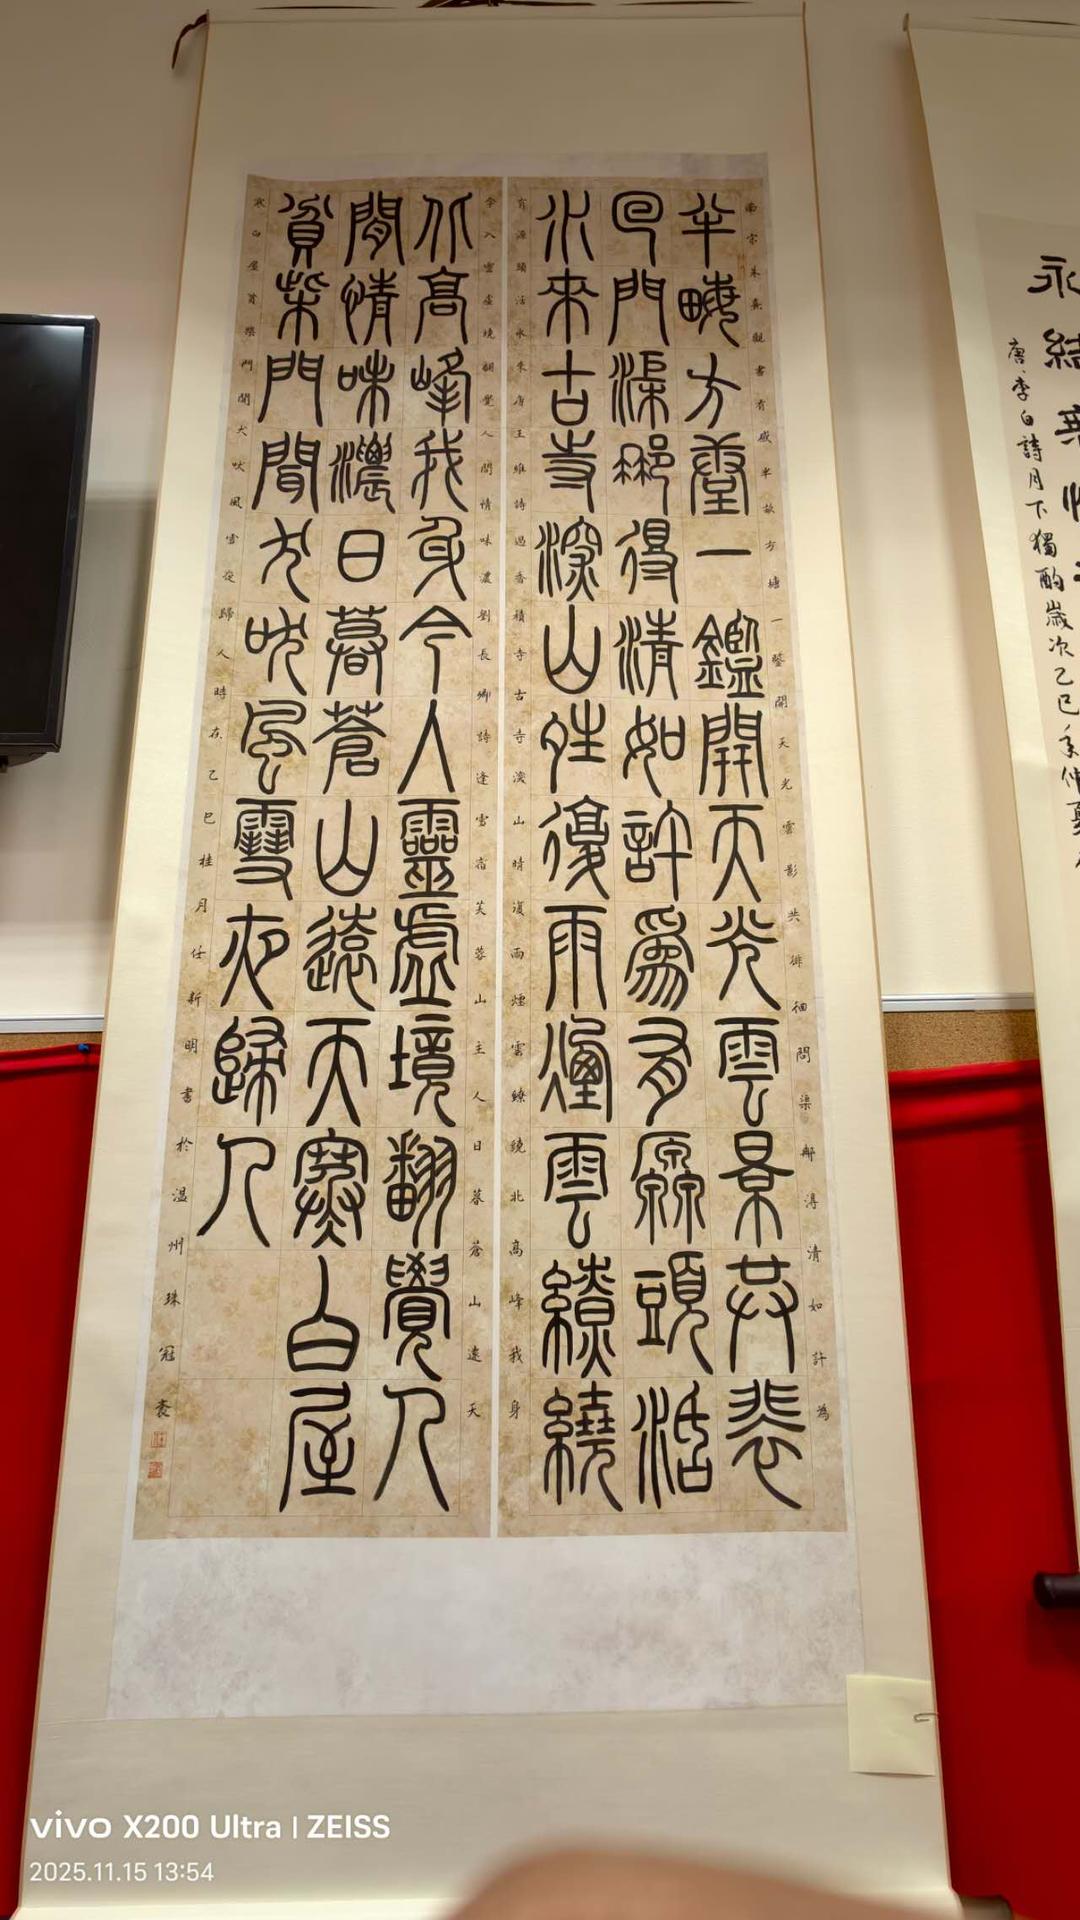 南宋朱熹觀書有感半畝方塘一鑒開天光雲影共徘徊問渠那得清如許為
半畮方塘一鑑開天光雲景共裴
回門渠郍得清如許爲有原頭活
水來古寺深山夝復雨煙雲繚繞
有源頭活水來唐王維詩過香積寺古寺深山晴復雨煙雲繚繞北高峰我身
今入靈虛境翻覺人間情味濃劉長卿詩逢雪宿芙蓉山主人日暮蒼山遠天
北高峰我身今入靈虛境翻覺人
間情味濃日暮蒼山遠天寒白屋
貧柴門聞犬吠風雪夜歸人
寒白屋貧柴門聞犬吠風雪夜歸人時在乙巳桂月任新明書於温州珠冠
永結無情
唐李白詩月下獨酌歲次乙巳年仲夏
vivo X200 Ultra | ZEISS
2025.11.15 13:54